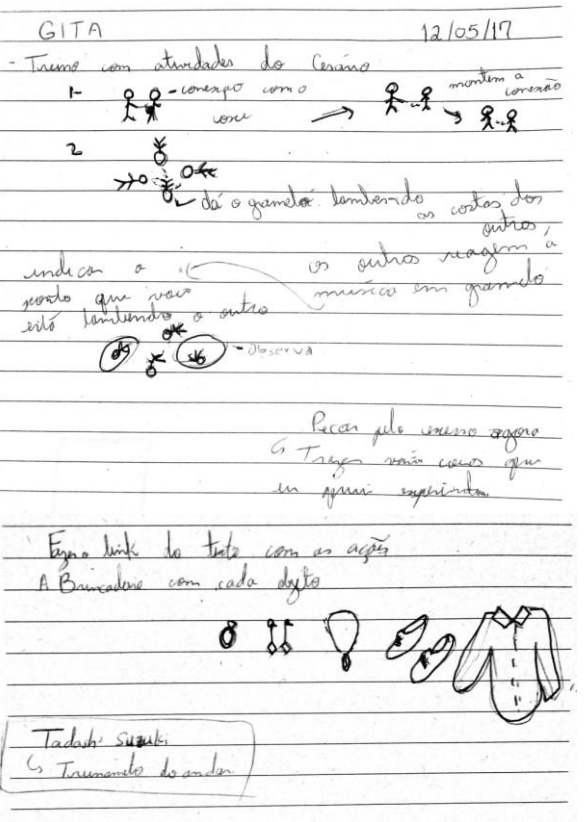 GITA 12/05/17
- Treino com atividades do Cesário
1- - conexão como
você
montem a
conexão
2
dá o gramelô. lambendo
as costas dos
outros,
os outros reagem à
música em gramelô
indica o
ponto que você
está lambendo o outro
- Observa
Pecar pelo excesso agora
↳ Trazer coisas que
eu quiser experimentar
Fazer o link do texto com as ações
A Brincadeira com cada objeto
Tadashi Suzuki
↳ Treinamento do andar